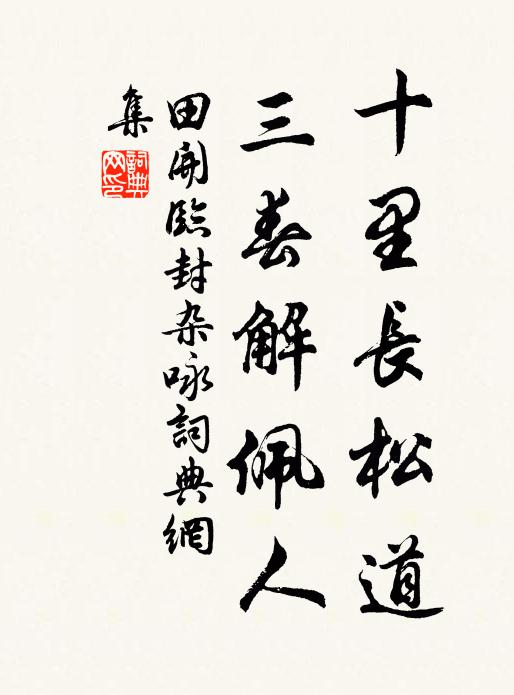 十里長松道
三春解佩人
田開臨封杂咏詞典網
集
詞典
网印